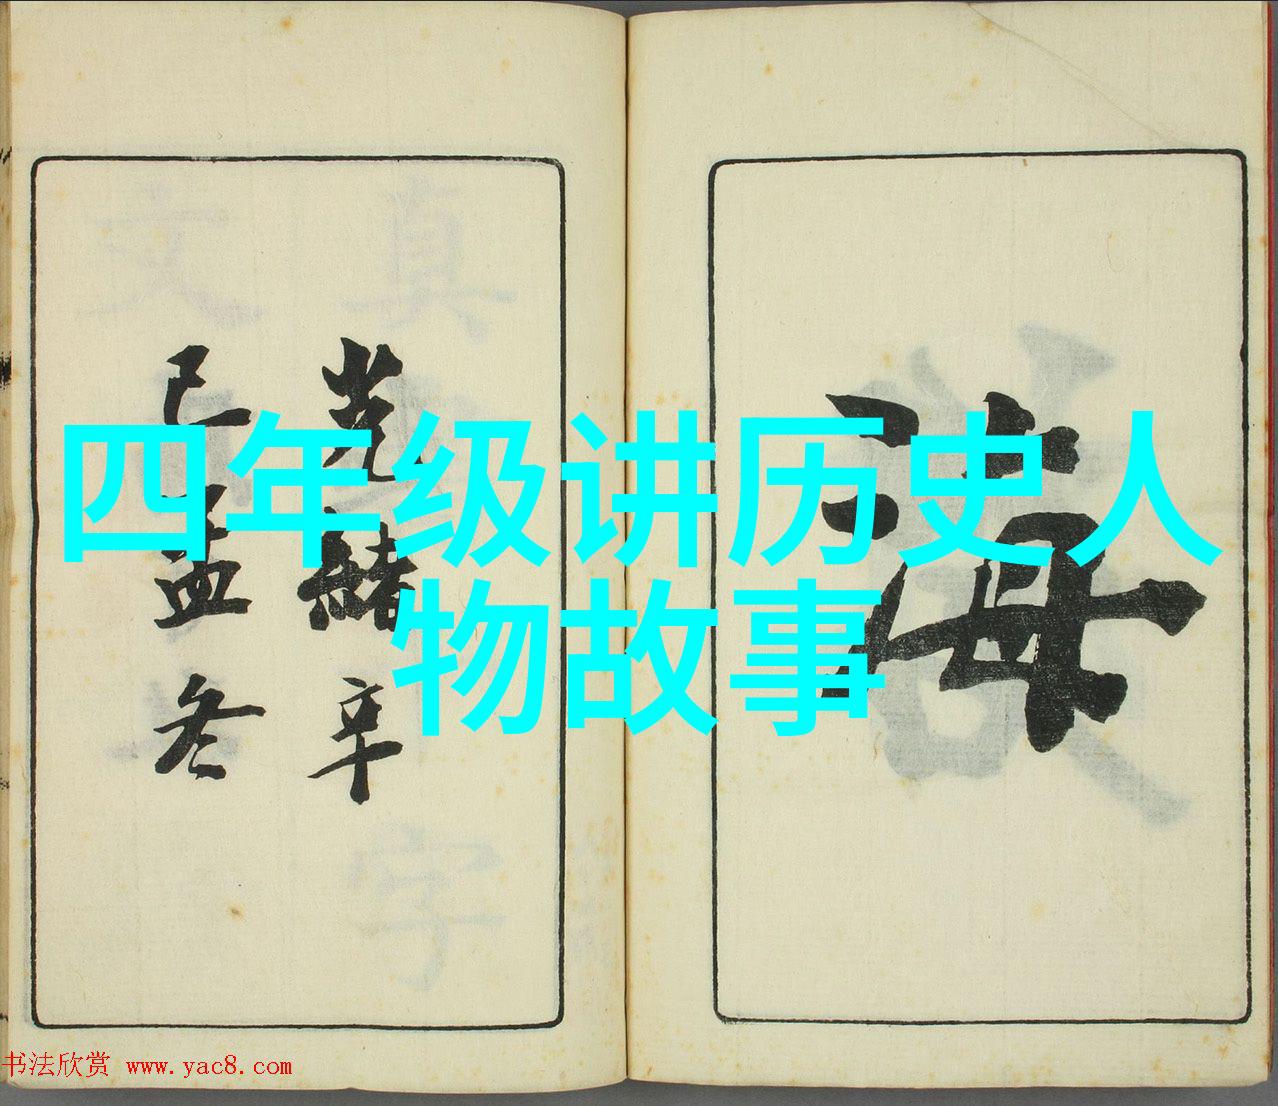 四年级讲历史人
物故事
海
光绪辛
巳孟冬
书法欣赏 www.yac8.com